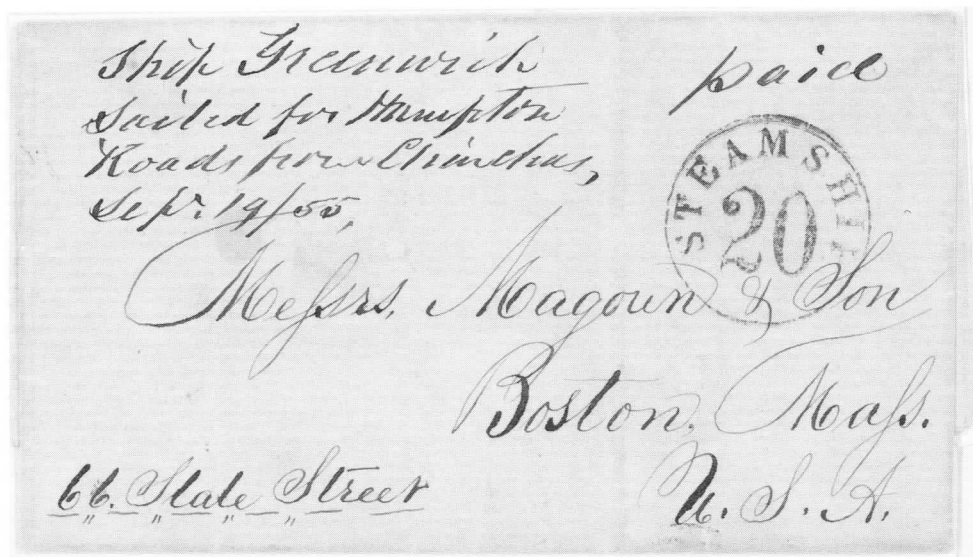 Ship Greenwich
Sailed for Hampton
Roads from Chinchas,
Sept. 19/55,
paid
STEAMSHIP
20
Messrs. Magoun & Son
Boston, Mass.
U.S.A.
66. State Street